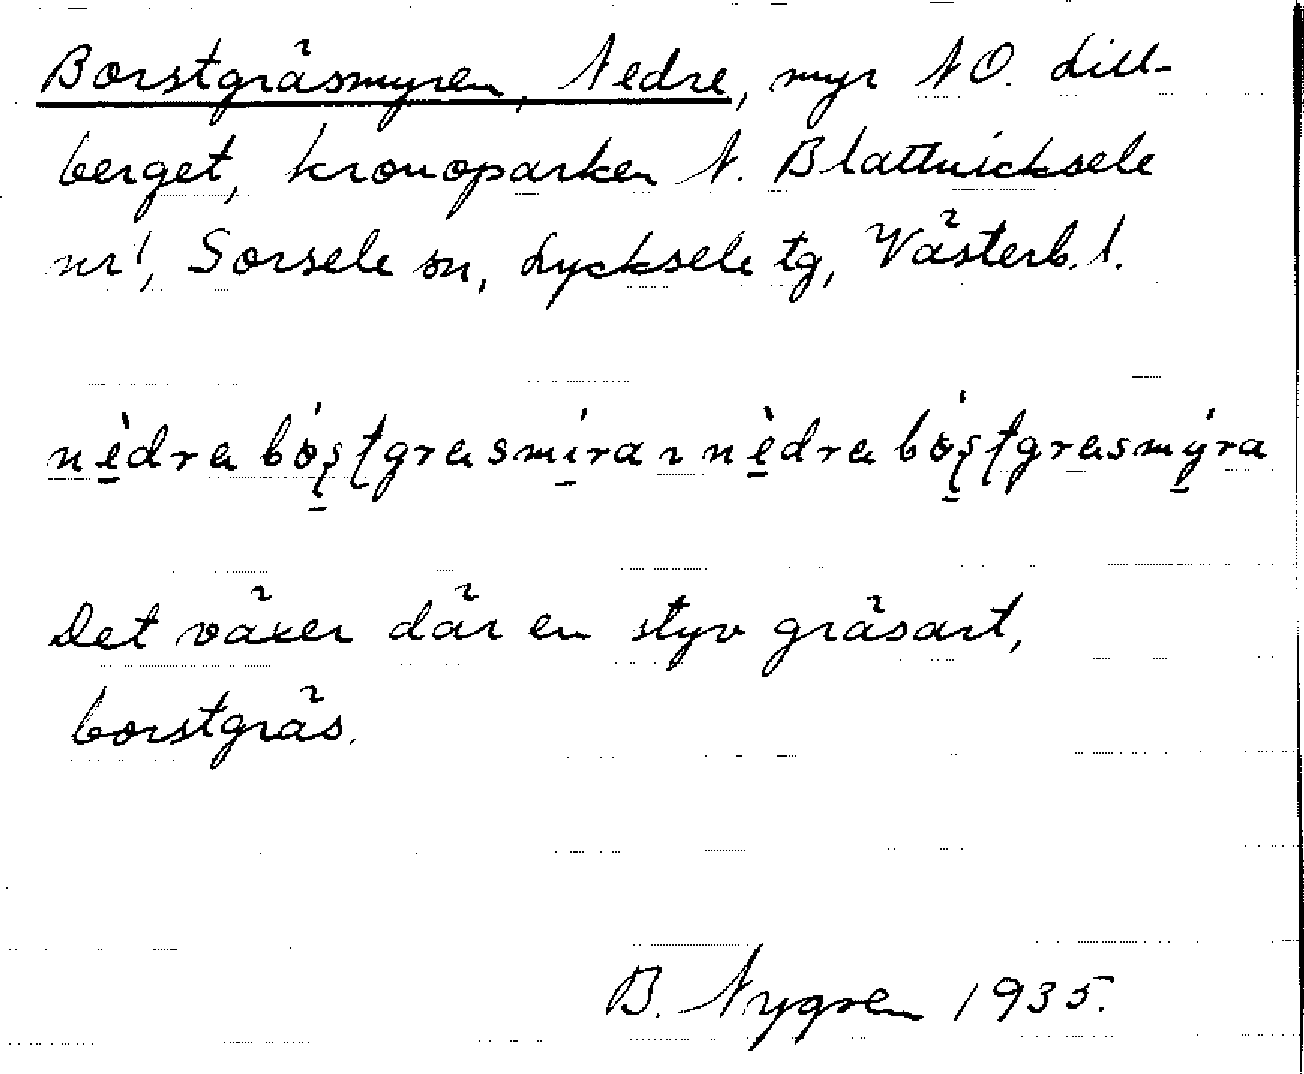 Borstgräsmyren, Nedre, myr NO. Lill-
berget, kronoparken N. Blattnicksele
nr 1, Sorsele sn, Lycksele tg, Västerb. l.
nèdra bó̱ʂʈgrasmí̱ra ~ nè̱dra bó̱ʂʈgrasmý̱ra
Det växer där en styv gräsart,
borstgräs.
B. Nygren 1935.